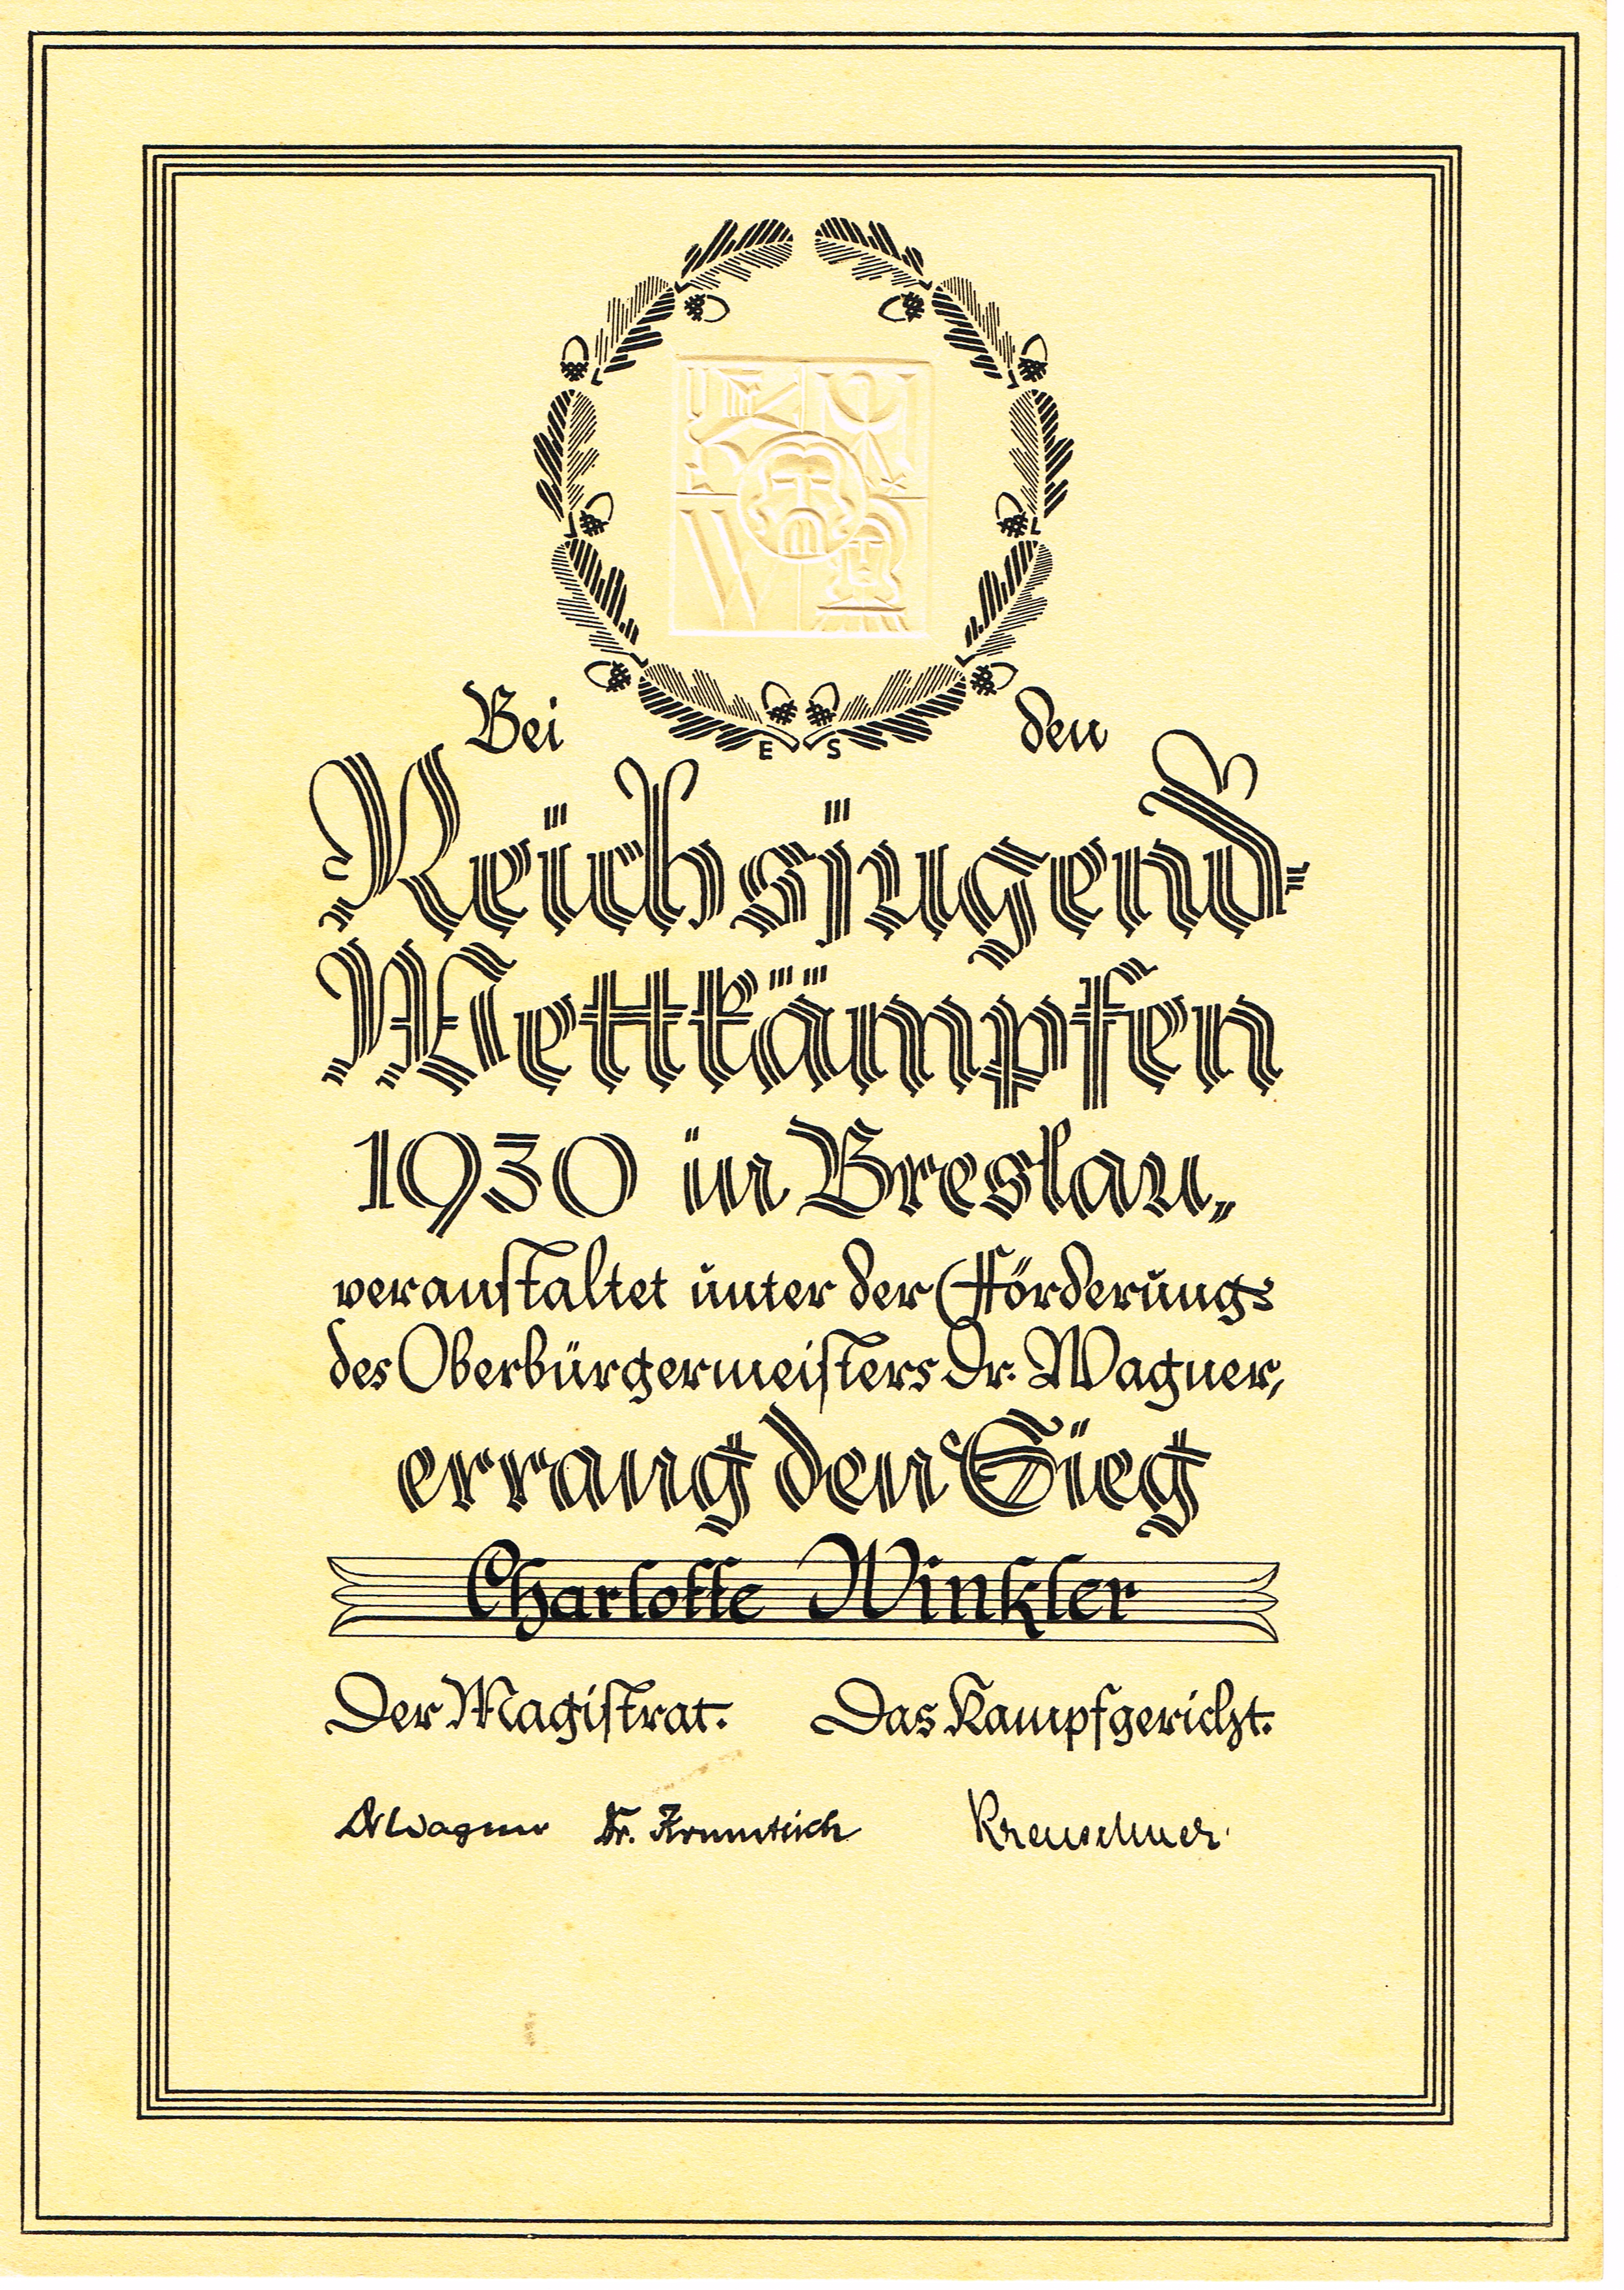 E S
Bei den
Reichsjugend-
Wettkämpfen
1930 in Breslau,
veranstaltet unter der Förderung
des Oberbürgermeisters Dr. Wagner,
errang den Sieg
Charlotte Winkler
Der Magistrat. Das Kampfgericht.
Dr Wagner Dr.